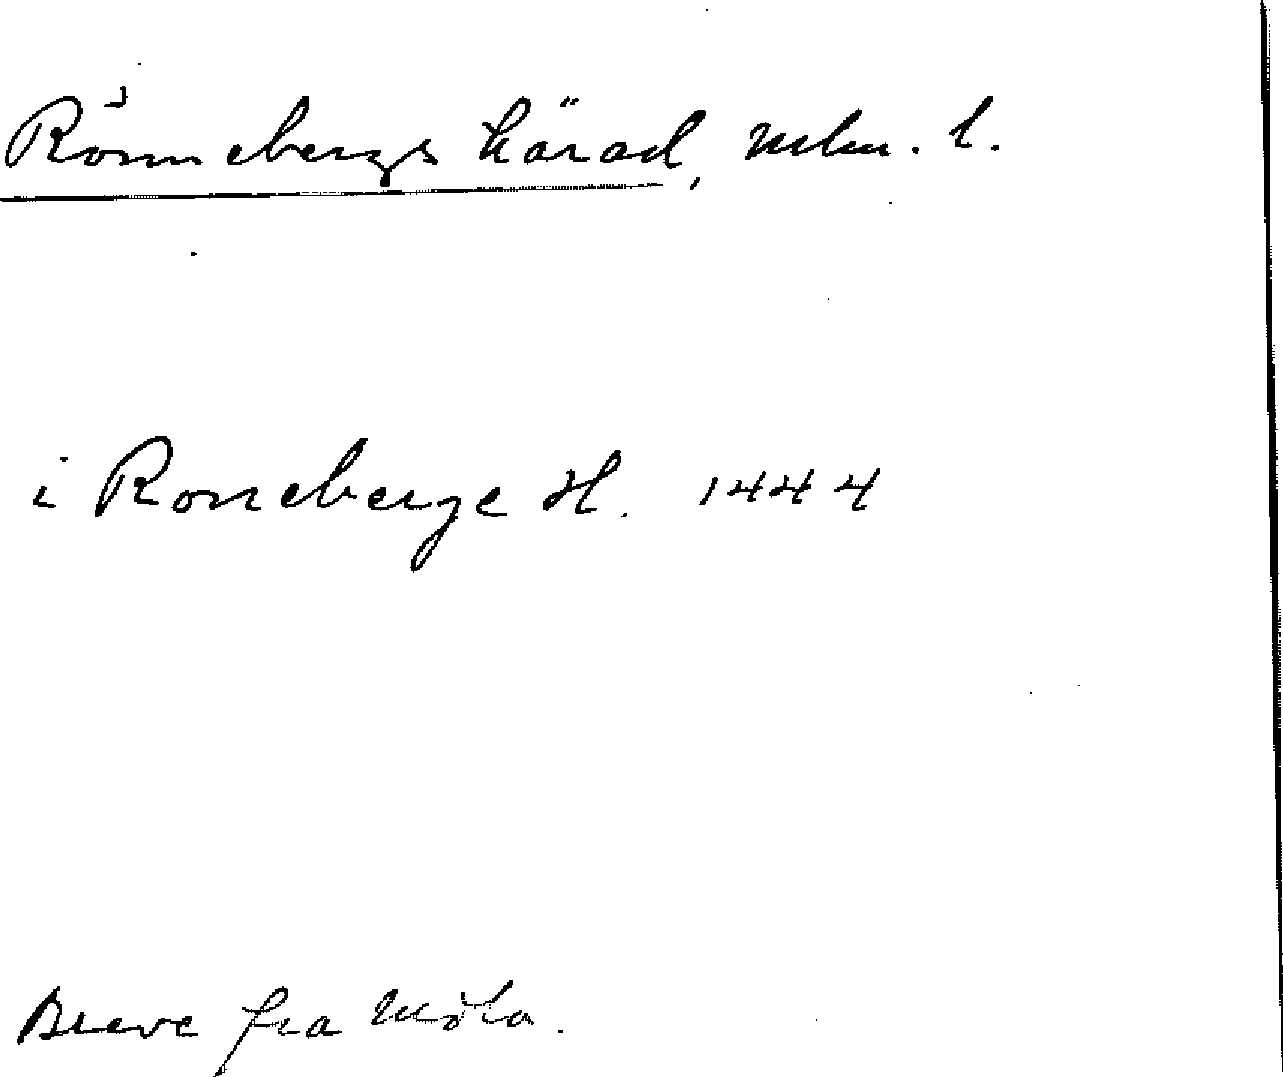 Rönnebergs härad, Mlm. l.
i Roneberge H. 1444
Breve fra Möło.